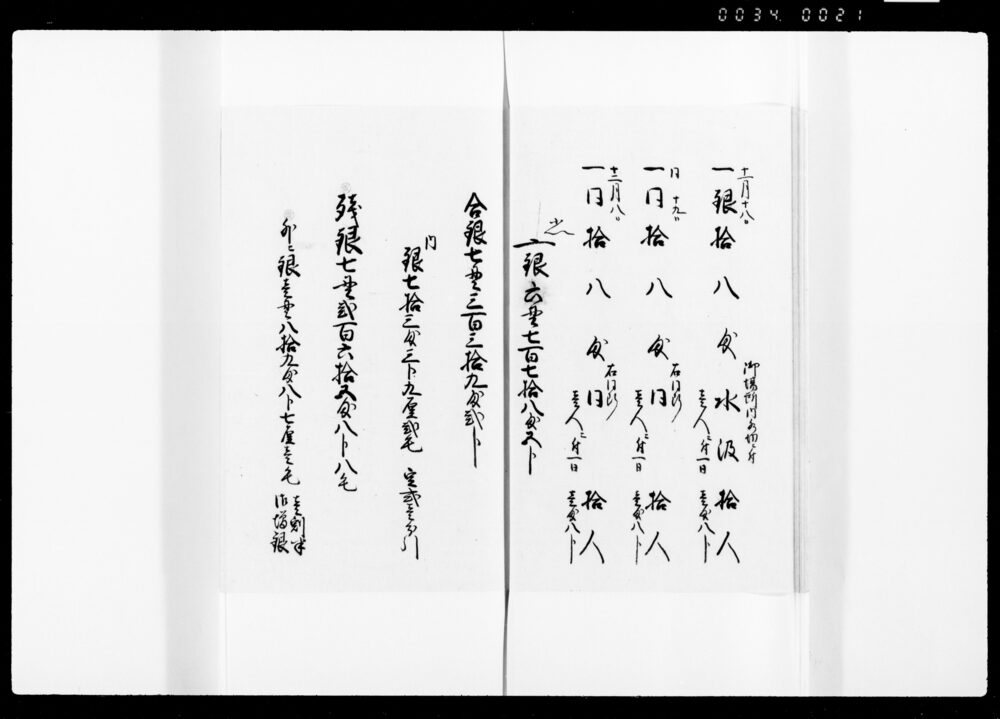 0034. 0021
十一月十八日
一銀拾八匁 水汲拾人
壱人ニ付一日
壱匁八卜
同 十九日
一同拾八匁 同拾人
石同断
壱人ニ付一日
壱匁八卜
十二月八日
一同拾八匁 同拾人
石同断
壱人ニ付一日
壱匁八卜
〆銀六貫七百七拾八匁五卜
合銀七貫三百三拾九匁弐卜
内
銀七拾三匁三卜九厘弐毛
残銀七貫弐百六拾五匁八卜八毛
外ニ銀壱貫八拾九匁八卜七厘壱毛
壱割半
御増銀